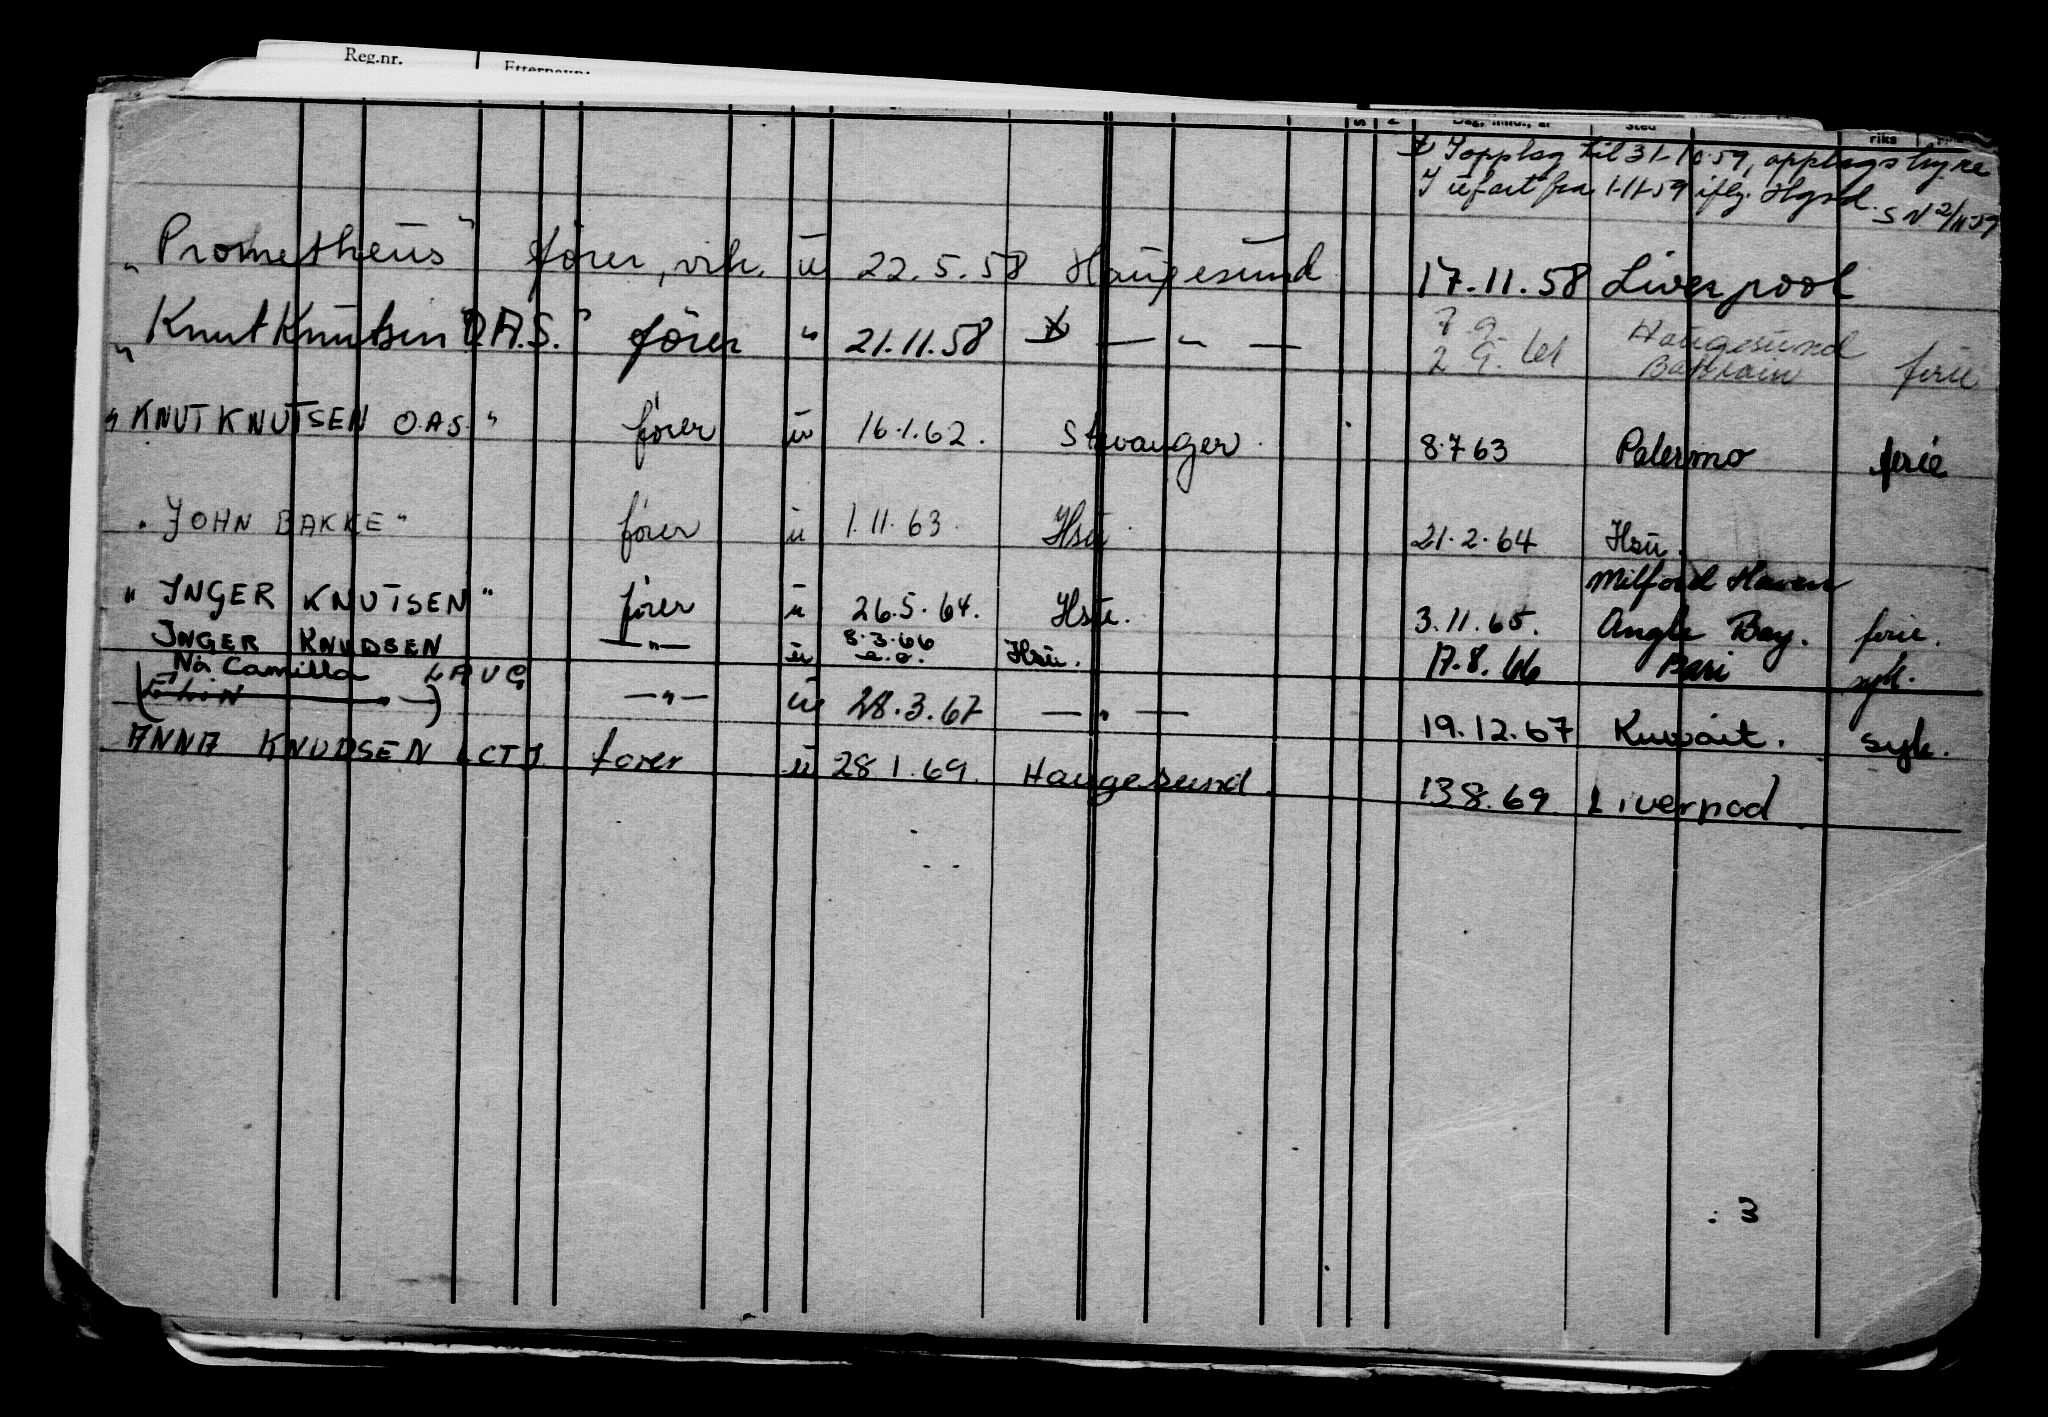 Reg.nr. Etternavn:
Dag, mnd., år Sted riks
I opplag til 31-10.59, opplagshyre
I ufart fra 1-11-59 iflg. Hgsd. SN 2/11-59
"Prometheus" fører, vik. u 22.5.58 Haugesund 17.11.58 Liverpool
"Knut Knutsen O.A.S." fører " 21.11.58 — " — 7 9. Haugesund
2 9. 61 Bahrain ferie
"KNUT KNUTSEN O.A.S." fører u 16.1.62. Stavanger. 8.7 63 Palermo ferie
"JOHN BAKKE" fører u 1.11.63. Hsu. 21.2.64 Hsu.
Milford Haven
"INGER KNUTSEN" fører u 26.5.64. Hsu. 3.11.65. Angle Bay. ferie.
INGER KNUDSEN — " — u 8.3.66 Hsu. 17.8.66 Bari syk.
Nå Camilla
LAUG — " — u 28.3.67 — " — 19.12.67 Kuwait. syk.
ANNA KNUDSEN LCTJ fører u 28 1.69. Haugesund. 13 8.69. Liverpool.
3